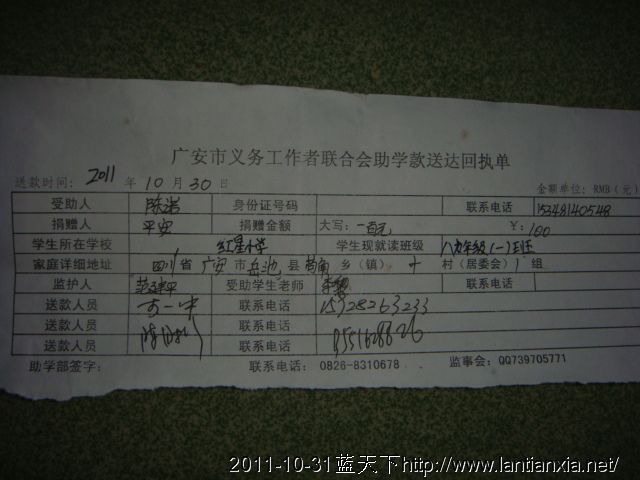 广安市义务工作者联合会助学款送达回执单
送款时间: 2011 年 10 月 30 日 金额单位: RMB (元)
受助人 身份证号码 联系电话 15348140548
捐赠人 平安 捐赠金额 大写: 一百元 ¥: 100
学生所在学校 红星小学 学生现就读班级 级(一)班
家庭详细地址 四川省 广安市 岳池县 乡(镇) 十 村(居委会) 1 组
监护人 受助学生老师 联系电话
送款人员 联系电话 15928263233
送款人员 联系电话
送款人员 联系电话
助学部签字: 联系电话: 0826-8310678 监事会: QQ739705771
2011-10-31蓝天下http://www.lantianxia.net/